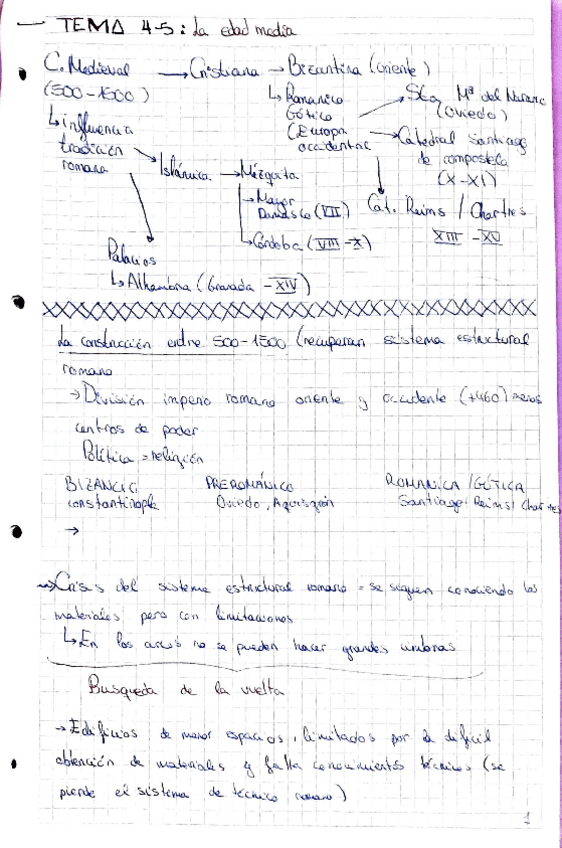 TEMA 4-5: La edad media
C. Medieval → Cristiana → Bizantina (oriente)
(500-1500)
↳ influencia
tradición
romana
↳ Romanico
Gótico
(Europa
occidental
Sta Mª del Naranc
(Oviedo)
Catedral Santiago
de compostela
(X-XI)
Islámica → Mézquita
→ Mayor
Damasco (VII)
↳ Córdoba (VIII-X)
Cat. Reims / Chartres
XIII - XV
Palacios
↳ Alhambra (Granada - XIV)
La construcción entre 500-1500 (recuperan sistema estructural
romano
→ División imperio romano oriente y occidente (+460)
centros de poder
Política = religión
BIZANCIO PREROMÁNICO ROMANICA / GÓTICA
constantinople Oviedo, Aquisgrán Santiago, Reims/ Chartres
→
Crisis del sistema estructural romano = se siguen conociendo los
materiales pero con limitaciones
↳ En los arcos no se pueden hacer grandes
Busqueda de la vuelta
→ Edificios de menor espacios, limitados por la dificil
obtención de materiales y falta conocimientos técnicos (se
pierde el sistema de técnico romano)
1